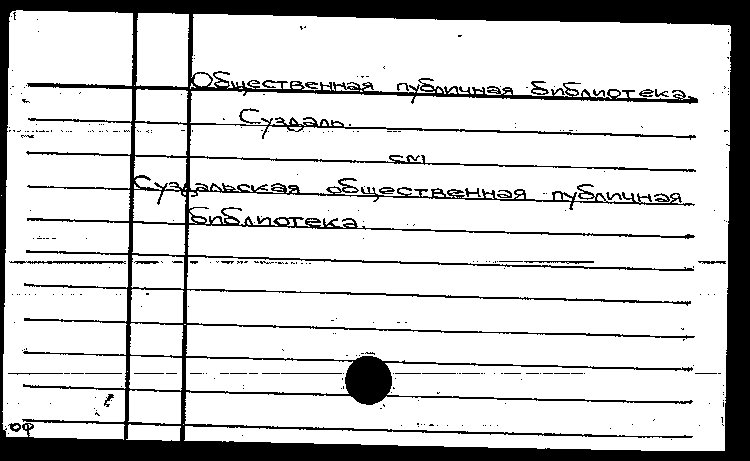 Общественная публичная библиотека.
Суздаль.
см
Суздальская общественная публичная
библиотека.
ОФ